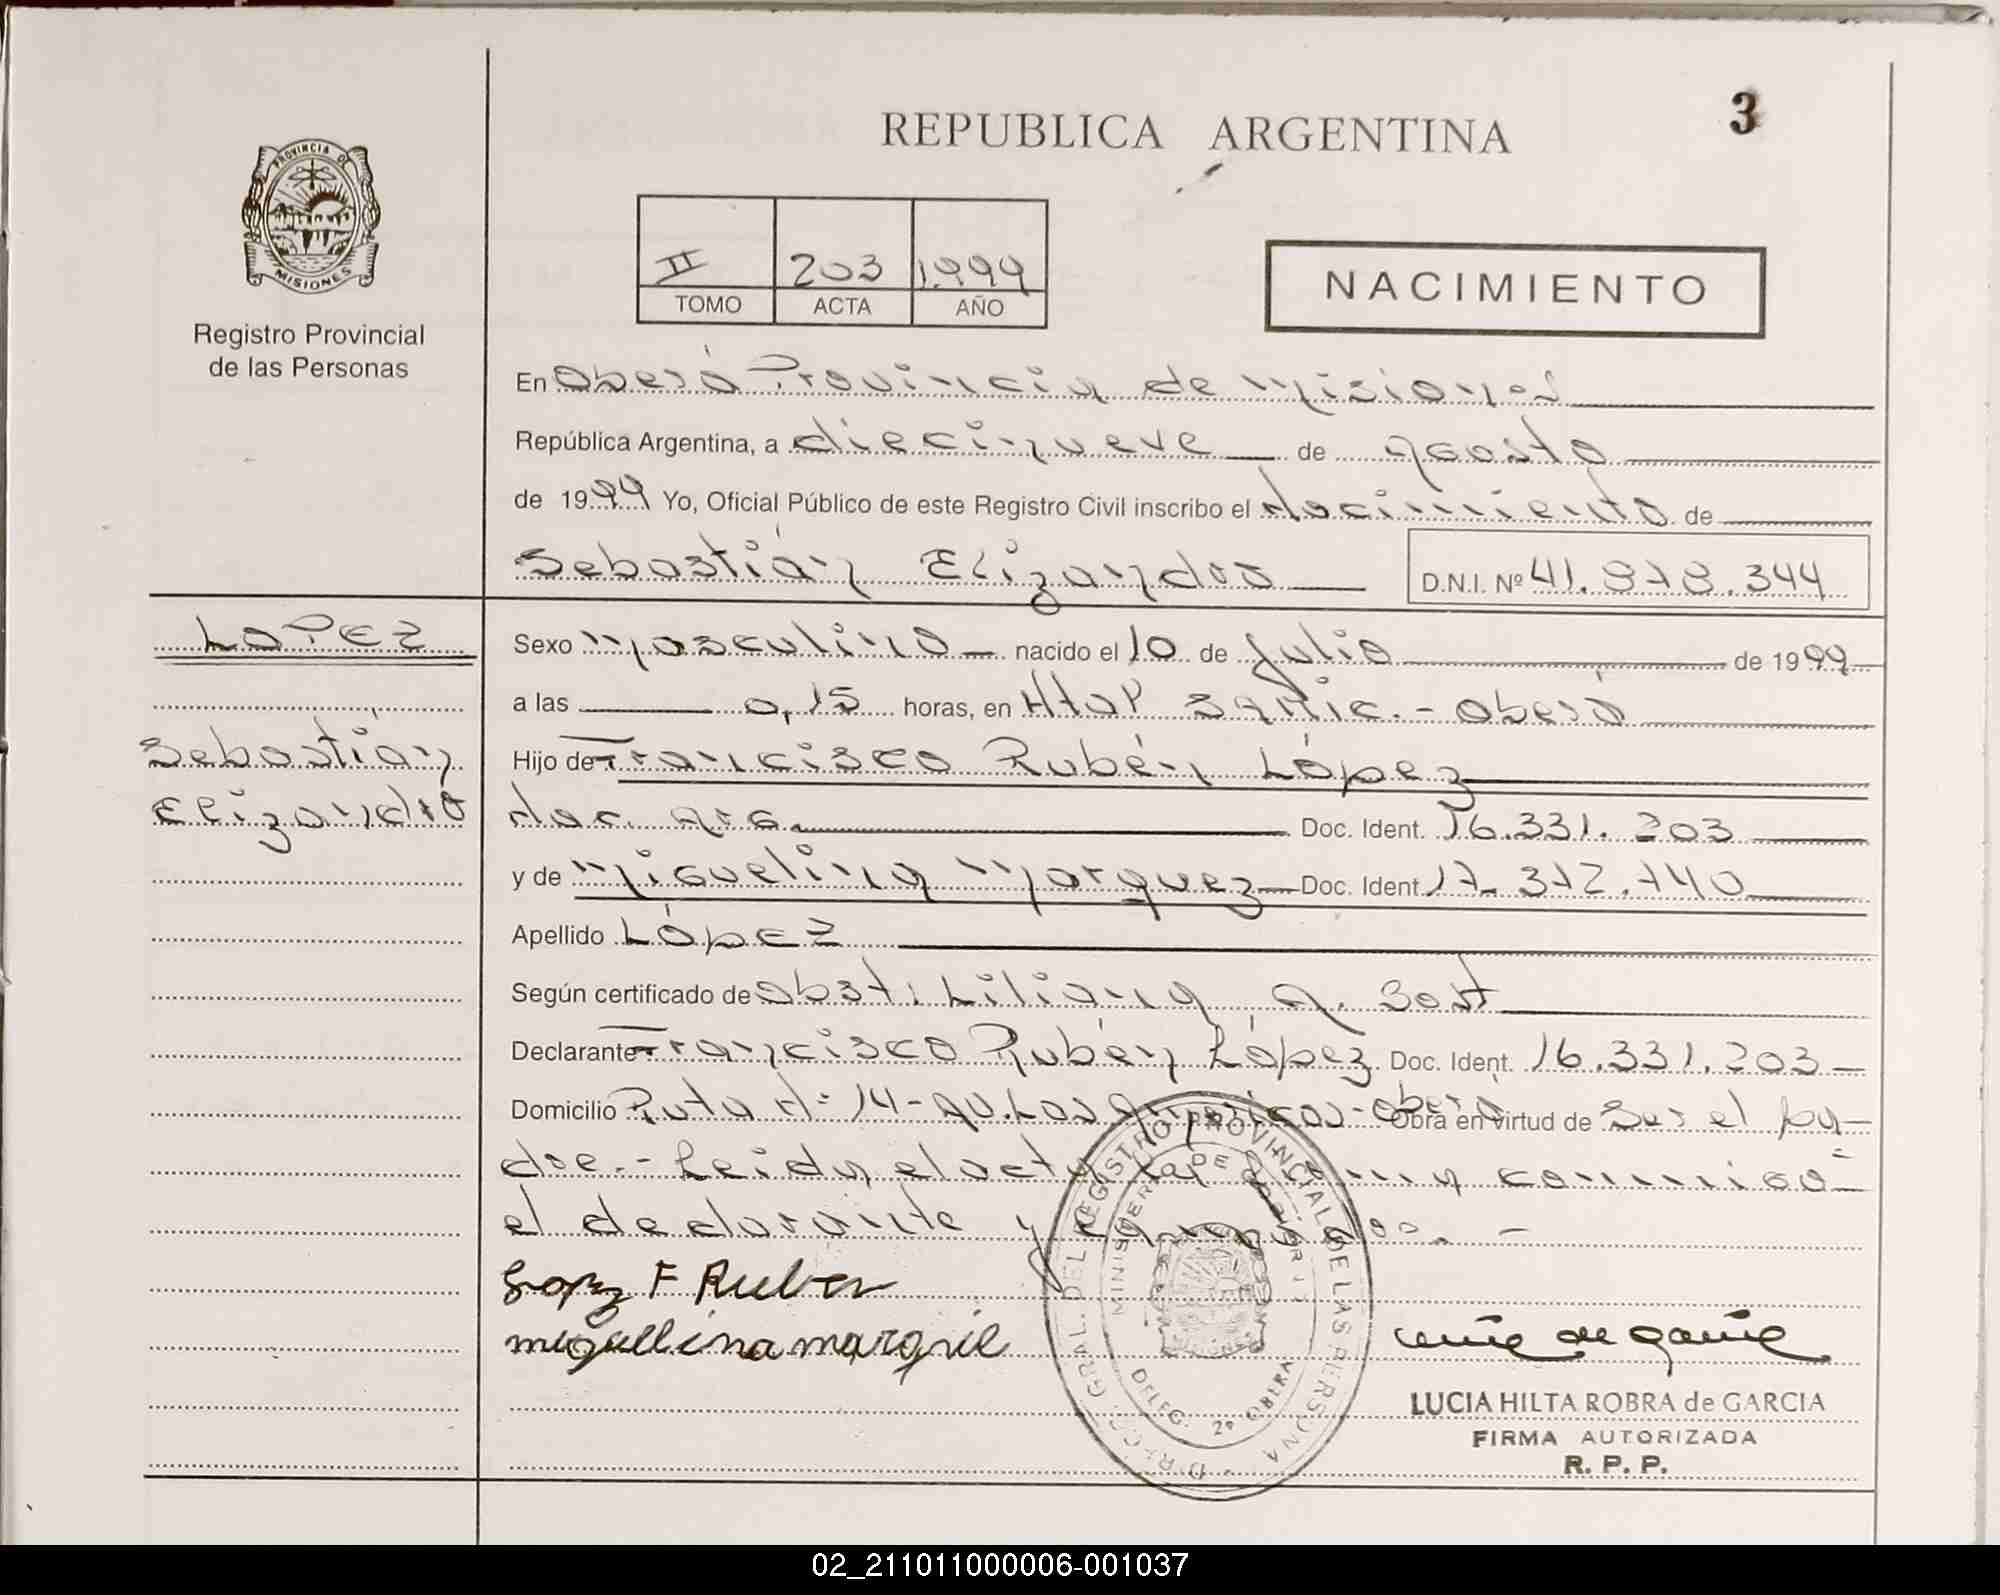 REPUBLICA ARGENTINA
3
PROVINCIA DE
MISIONES
Registro Provincial
de las Personas
II 203 1.999
TOMO ACTA AÑO
NACIMIENTO
En Oberá Provincia de Misiones
República Argentina, a diecinueve de agosto
de 1999 Yo, Oficial Público de este Registro Civil inscribo el Nacimiento de
Sebastián Elizandro D.N.I. Nº 41.878.344
LOPEZ
Sebastián
Elizandro
Sexo masculino nacido el 10 de Julio de 1999
a las 0,15 horas, en Htal Samic.- Oberá
Hijo de Francisco Rubén López
Nac. Arg. Doc. Ident. 16.331.203
y de Miguelina Marquez Doc. Ident. 17.372.740
Apellido LÓPEZ
Según certificado de Obst: Liliana A. Sost
Declarante Francisco Rubén López Doc. Ident. 16.331.203
Domicilio Ruta Nº 14 - Av. Las Américas - Oberá Obra en virtud de Ser el pa-
dre.- Leida el acta la firma conmigo
el declarante y
Lopez F Ruben
miguelina marquez
DIRECC. GRAL. DEL REGISTRO PROVINCIAL DE LAS PERSONAS
MINISTERIO DE
DELEG. 2ª OBERA
LUCIA HILTA ROBRA de GARCIA
FIRMA AUTORIZADA
R. P. P.
02_211011000006-001037